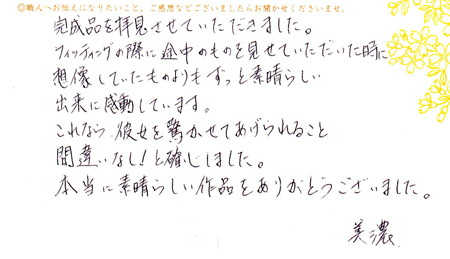 ◎職人へお伝えになりたいこと、ご感想などございましたらお聞かせくださいませ。
完成品を拝見させていただきました。
フィッティングの際に途中のものを見せていただいた時に
想像していたものよりもずっと素晴らしい
出来に感動しています。
これなら彼女を驚かせてあげられること
間違いなし!と確信しました。
本当に素晴らしい作品をありがとうございました。
美濃